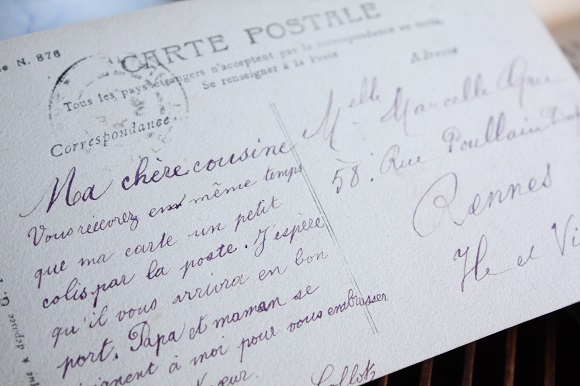 N. 876
CARTE POSTALE
Tous les pays étrangers n'acceptent pas la correspondance au recto.
Se renseigner à la Poste
Correspondance.
Adresse
Ma chère cousine
Vous recevrez en même temps
que ma carte un petit
colis par la poste. J'espère
qu'il vous arrivra en bon
port. Papa et maman se
à moi pour vous embrasser
Melle Marcelle
58: Rue Poullain
Rennes
Ile et